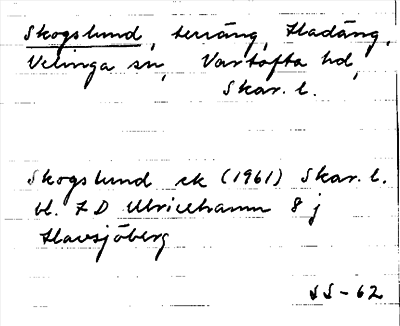 Skogslund, terräng, Hadäng,
Velinga sn, Vartofta hd,
Skar. l.
Skogslund ek (1961) Skar. l.
bl. 7 D Ulricehamn 8 j
Havsjöberg
SS-62